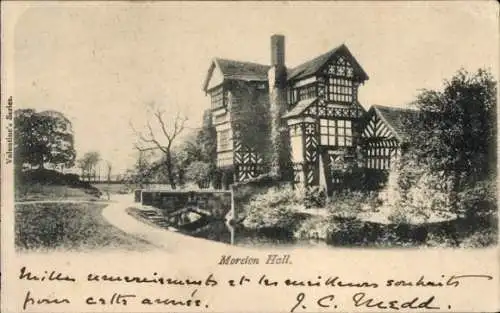 Valentine's Series.
Moreton Hall.
Mille remerciements et les meilleurs souhaits
pour cette année. J. C. Medd